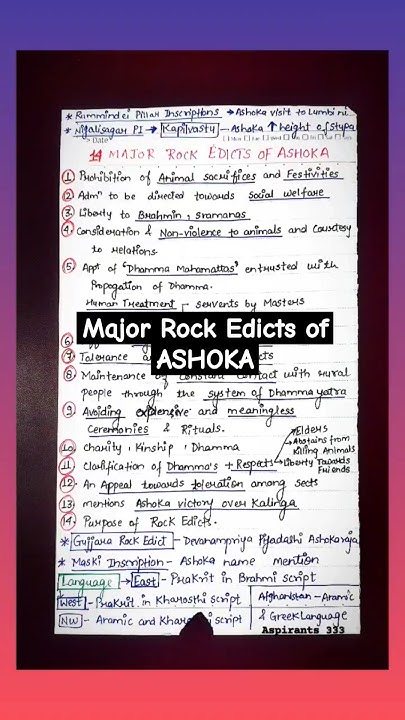 * Rummindei Pillar Inscriptions → Ashoka visit to Lumbini
* Nigalisagar PI → Kapilvastu - Ashoka ↑ height of stupa
Date
14 MAJOR ROCK EDICTS OF ASHOKA
1. Prohibition of Animal sacrifices and Festivities
2. Admⁿ to be directed towards social welfare
3. Liberty to Brahmin, sramanas
4. Consideration & Non-violence to animals and Courtesy
to relations
5. Appt of 'Dhamma Mahamattas' entrusted with
Propagation of Dhamma.
Human Treatment - servents by Masters
Major Rock Edicts of
ASHOKA
6.
7. Tolerance
8. Maintenance of constant contact with rural
people through the system of Dhammayatra
9. Avoiding expensive and meaningless
Ceremonies & Rituals.
10. Charity, Kinship, Dhamma
11. Clarification of Dhamma's + Respects
→ Elders
→ Abstains from
Killing Animals
→ Liberty Towards
Friends
12. An Appeal towards toleration among sects
13. mentions Ashoka victory over Kalinga
14. Purpose of Rock Edicts.
* Gujjara Rock Edict - Devanampriya Piyadashi Ashokaraja
* Maski Inscription - Ashoka name mention
Language → East - Prakrit in Brahmi script
West - Prakrit in Kharosthi script
Afghanistan - Aramic
& Greek Language
NW - Aramic and script
Aspirants 333